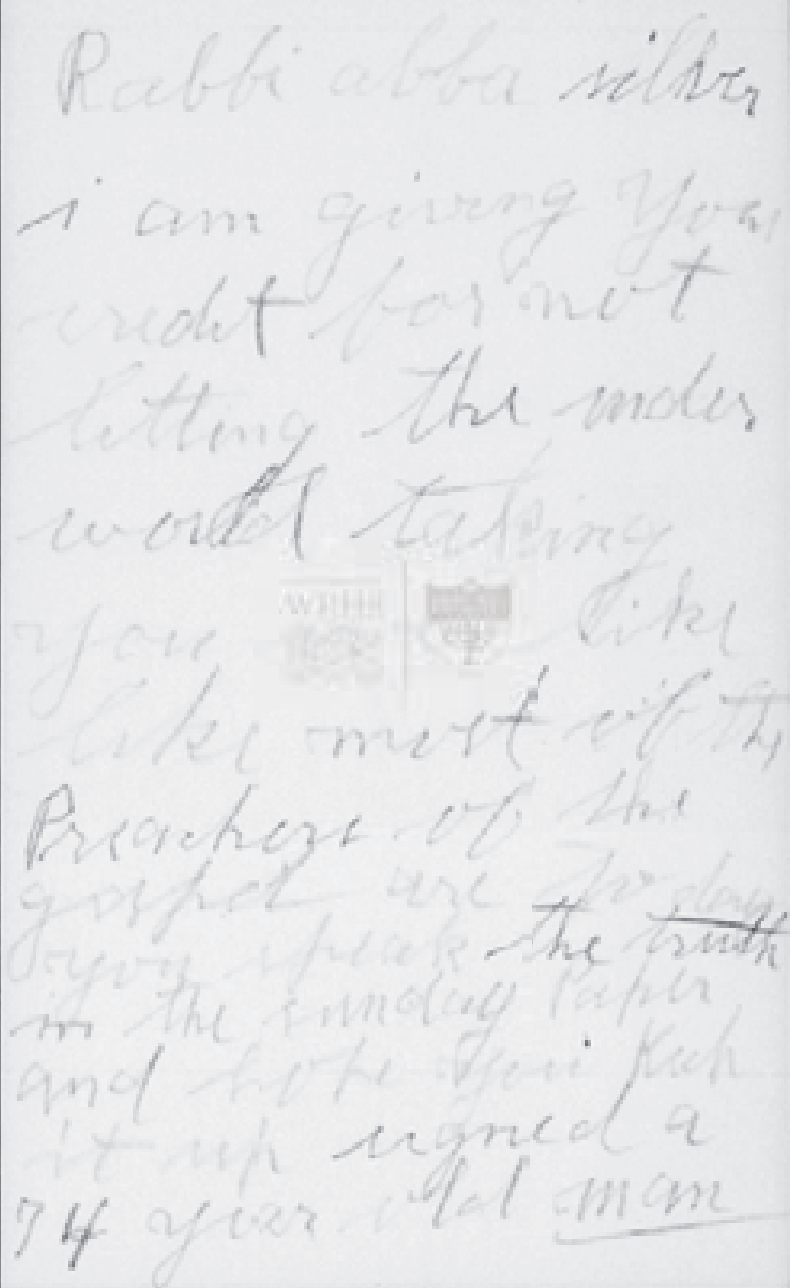 Rabbi abba silver
i am giving You
credit for not
letting the under
world taking
you like
like most of the
Preachers of the
gospel are to day
you speak the truth
in the sunday Paper
and hope you Keep
it up signed a
74 year old man